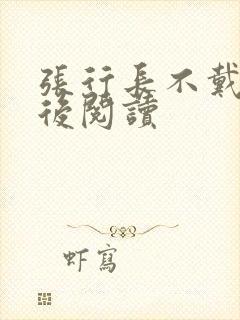 張行長不戴
後閱讀
虾寫